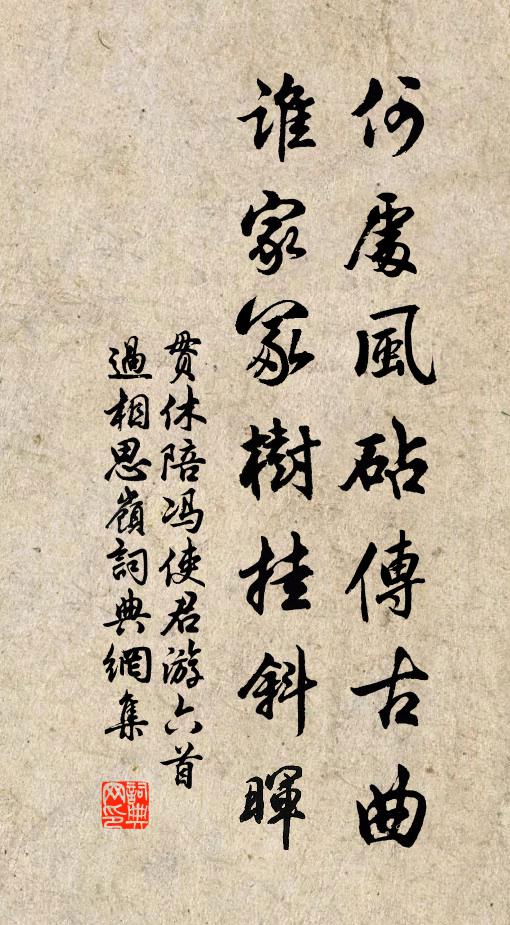 何處風砧傳古曲
誰家冢樹挂斜暉
貫休陪冯使君游六首
過相思嶺詞典網集
詞典网印